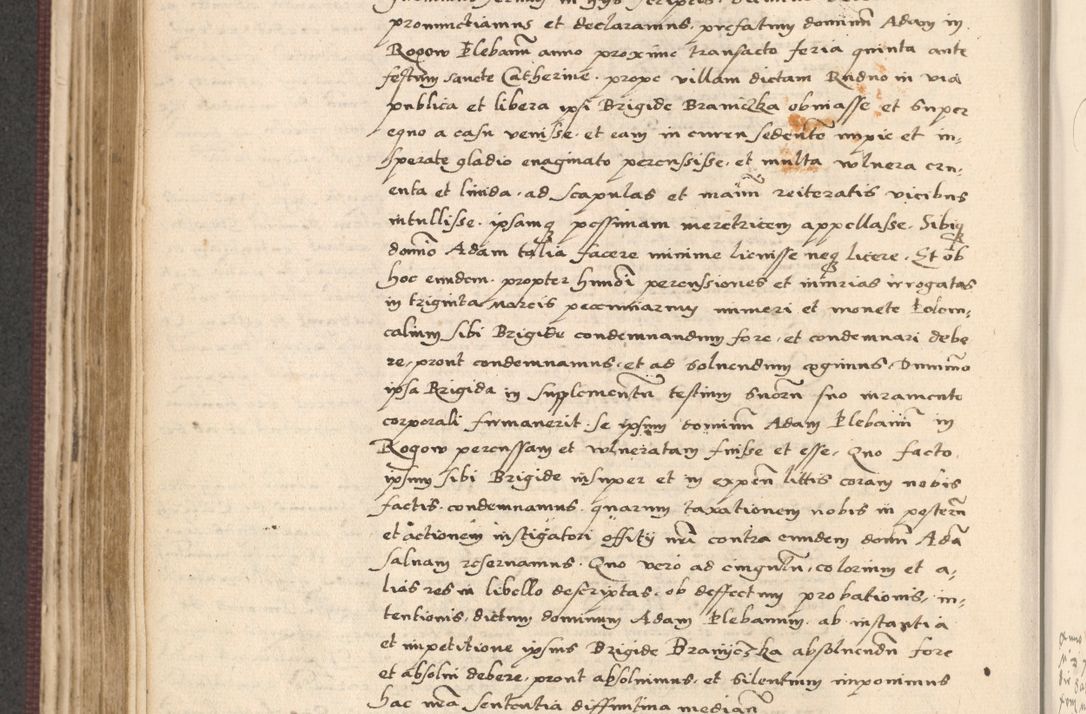 pronunctiamus et declaramus, prefatum dominū Adam in
Rogow Plebanū anno proxime transacto feria quinta ante
festum sancte Catherine, prope villam dictam Rudno in via
publica et libera ipsi Brigide Braniczka obuiasse et super
equo a casu venisse, et eam in curru sedentē impie et in,
sperate gladio euaginato percussisse, et multa wlnera cru,
enta et liuida, ad scapulas et manū reiteratis vicibus
intullisse, ipsamq pessimam meretricem appellasse. Sibiq
domīo Adam talia facere minime licuisse neq licere. Et ob
hoc eundem, propter hmōi percussiones et iniurias irrogatas
in triginta marcis pecuniarum numeri et monete Polon,
calium sibi Brigide condemnandum fore, et condemnari debe
re, prout condemnamus, et ad soluendum cogimus. Dummō
ipsa Brigida in supplementū testium suorū suo iuramento
corporali firmauerit se ipsum dominū Adam Plebanū in
Rogow percussam et wlneratam fuisse et esse. Quo facto
ipsum sibi Brigide insuper et in expen̄ littis coram nobis
factis, condemnamus, quarum taxationem nobis in posterū
et actionem instigatori offitij nrī contra eundem domū Adā
saluam reseruamus. Quo vero ad cingulū, colorum et a,
lias res in libello descriptas, ob deffectum probationis, in,
tentionis, dictum dominum Adam Plebanum, ab instantia
et impetitione ipsius Brigide Braniczka absoluendū fore
et absolui debere, prout absoluimus, et silentium imponimus
hac nrā sententia diffinitiua median̄